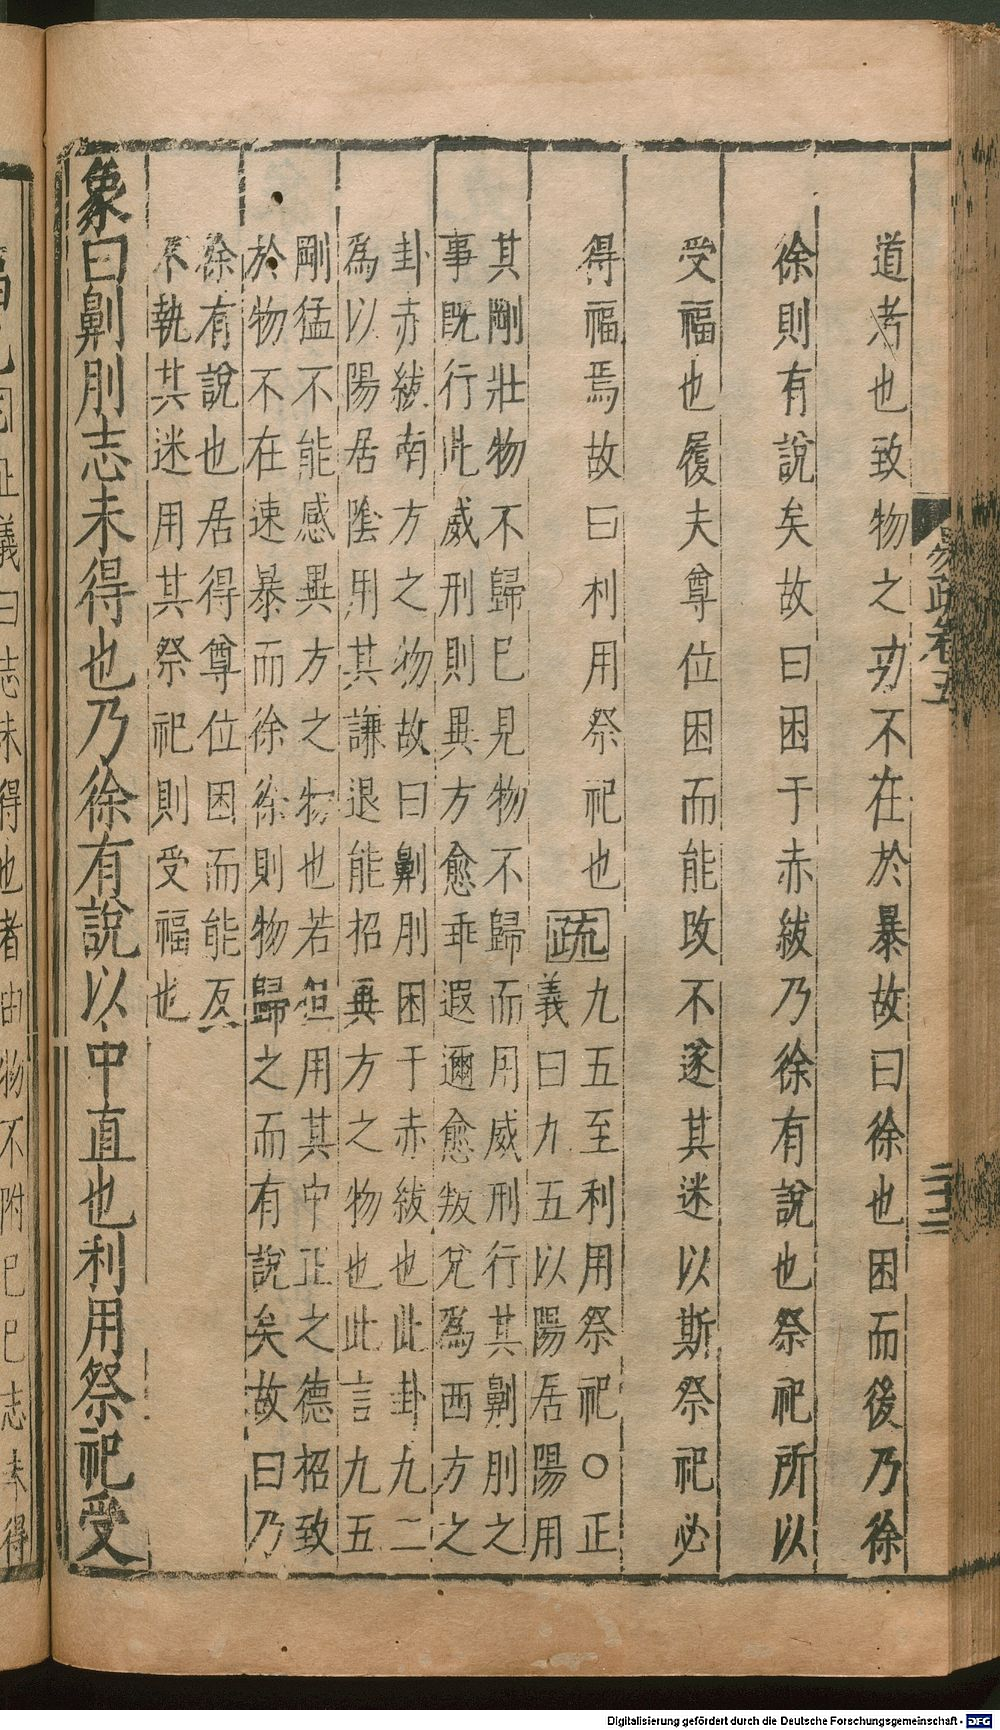 道者也致物之功不在於暴故曰徐也困而後乃徐
徐則有說矣故曰困于赤紱乃徐有說也祭祀所以
受福也履夫尊位困而能改不遂其迷以斯祭祀必
得福焉故曰利用祭祀也
疏
九五至利用祭祀○正
義曰九五以陽居陽用
其剛壯物不歸巳見物不歸而用威刑行其劓刖之
事既行此威刑則異方愈乖遐邇愈叛兊爲西方之
卦赤紱南方之物故曰劓刖困于赤紱也此卦九二
爲以陽居陰用其謙退能招異方之物也此言九五
剛猛不能感異方之物也若但用其中正之德招致
於物不在速暴而徐徐則物歸之而有說矣故曰乃
徐有說也居得尊位困而能反
不執其迷用其祭祀則受福也
象曰劓刖志未得也乃徐有說以中直也利用祭祀受
易疏卷五
二十二
福也
正義曰志未得也者由物不附巳巳志未得
Digitalisierung gefördert durch die Deutsche Forschungsgemeinschaft - DFG